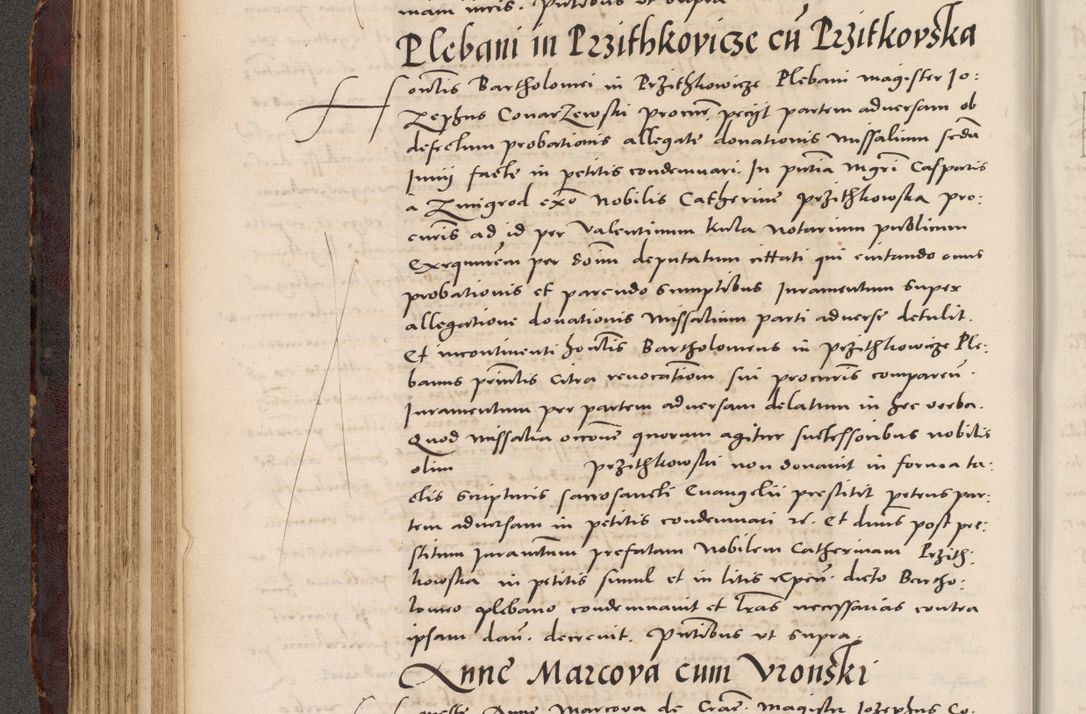 mam iuris. Pntibus ut supra
Plebani in Przithkovicze cū Przitkovska
Honēlis Bartholomei in Przithkowicze Plebani magister Jo:
zephus ConarZewski procur. petijt partem adversam ob
defectum probationis allegate donationis missalium secdū
Junij facte in petitis condemnari. In pntia mgri Casparis
a Zmigrod exō Nobilis Catherine przithkowska pro:
curis ad id per Valentinum kula Notarium publicum
Exequutem per Doim deputatum cittati qui evitando onus
probationis et parcendo sumptibus Juramentum super
allegatione donationis missalium parti adverse detulit.
Et incontinenti honēlis Bartholomeus in przithkowicze Ple:
banus prīntis citra revocatiōm sui procuris comparen.
Juramentum per partem adversam delatum in hec verba.
Quod missalia occōne quorum agitur successoribus nobilis
olim przithkowski non donavit in forma ta:
ctis scripturis sacrosancti Evangelii prestitit petens par:
tem adversam in petitis condemnari rc. Et dnus post pre:
stitum juramtum prefatam Nobilem Catherinam Przith:
kowska in petitis simul et in litis expen. dicto Bartho:
lomeo plebano condemnavit et lras necessarias contra
ipsam dan. decrevit. Pntibus ut supra.
Anne Marcova cum Vronski
Anne Marcova de Crac. magister Josephus Co: